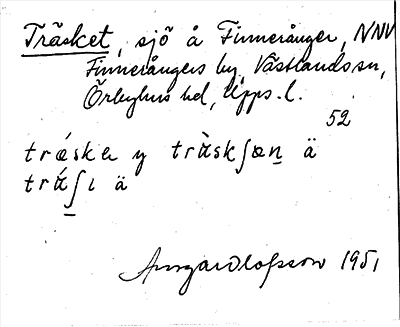 Träsket, sjö å Finnerånger, NNV
Finnerångers by, Västlands sn,
Örbyhus hd, Upps. l.
52
trǽske y trὰskʃœn ä
trάʃı ä
Olofsson 1951